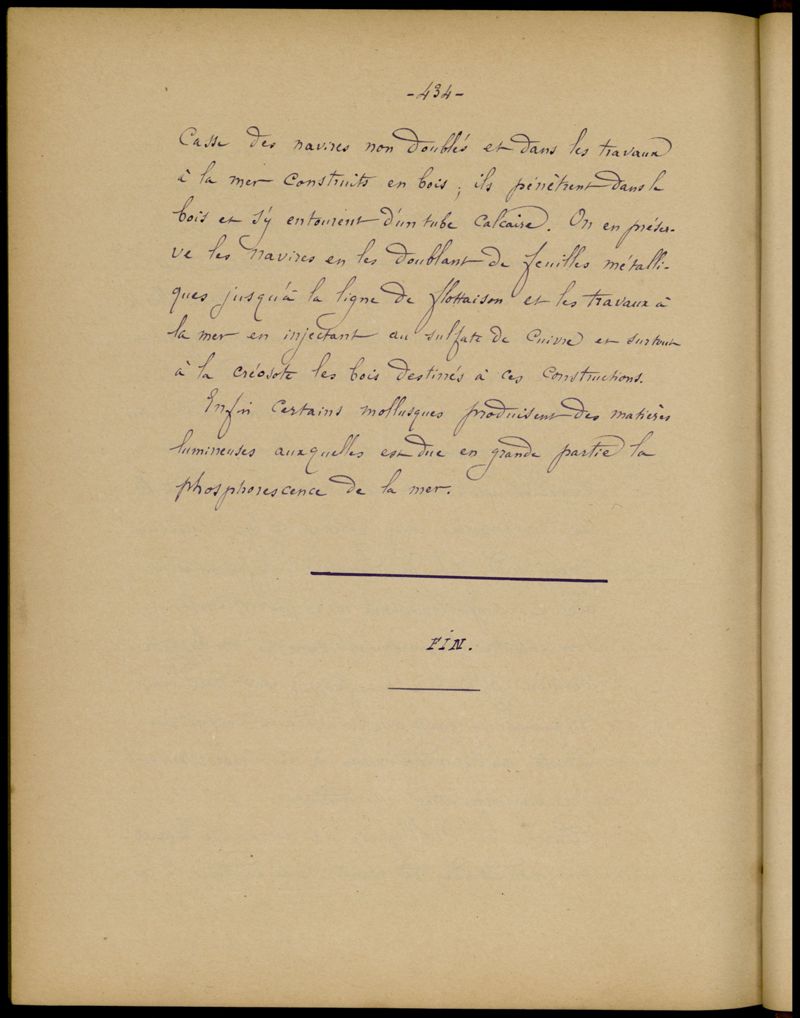 - 434 -
casse des navires non doublés et dans les travaux
à la mer construits en bois ; ils pénètrent dans le
bois et s'y entourent d'un tube calcaire. On en préser-
ve les navires en les doublant de feuilles métalli-
ques jusqu'à la ligne de flottaison et les travaux à
la mer en injectant au sulfate de cuivre et surtout
à la créosote les bois destinés à ces constructions.
Enfin certains mollusques produisent des matières
lumineuses auxquelles est due en grande partie la
phosphorescence de la mer.
FIN.